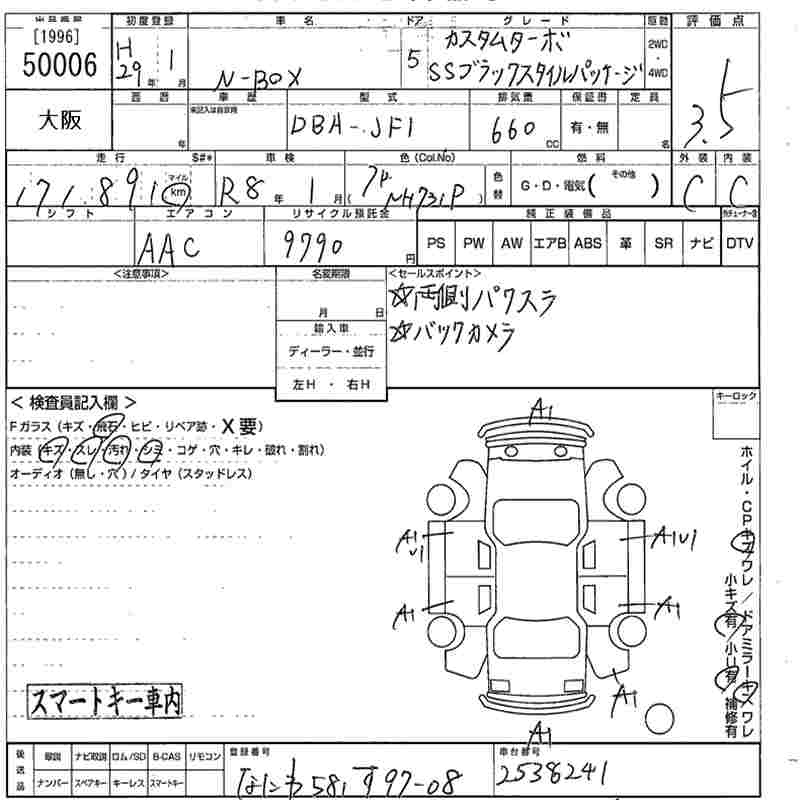 出品番号 初度登録 車名 ドア グレード 駆動 評価点
[1996]
50006
H29年 1月
N-BOX
5
カスタムターボ
SSブラックスタイルパッケージ
2WD・4WD
3.5
西暦 車歴 型式 排気量 保証書 定員
大阪
年
未記入は自家用
DBA-JF1
660 cc
有・無
名
走行 S#* 車検 色(Col.No) 燃料 外装 内装
171,891 マイル km
R8年 1月
NH731P
色替
G・D・電気( その他 )
C C
シフト エアコン リサイクル預託金 純正装備品
AAC
9790 円
PS PW AW エアB ABS 革 SR ナビ DTV
<注意事項> 名変期限 <セールスポイント>
月 日
☆両側パワスラ
☆バックカメラ
輸入車
ディーラー・並行
左H・右H
<検査員記入欄>
Fガラス(キズ・飛石・ヒビ・リペア跡・X要)
内装(キズ・スレ・汚れ・シミ・コゲ・穴・キレ・破れ・割れ)
オーディオ(無し・穴)/タイヤ(スタッドレス)
キーロック
A1
A1
U1
A1U1
A1
A1
A1
A1
ホイル・CPキズワレ/ドアミラーキズワレ
小キズ有/小U有/補修有
スマートキー車内
後送品
取説 ナビ取説 ロム/SD B-CAS リモコン
ナンバー スペアキー キーレス スマートキー
登録番号
なにわ581す97-08
車台番号
2538241